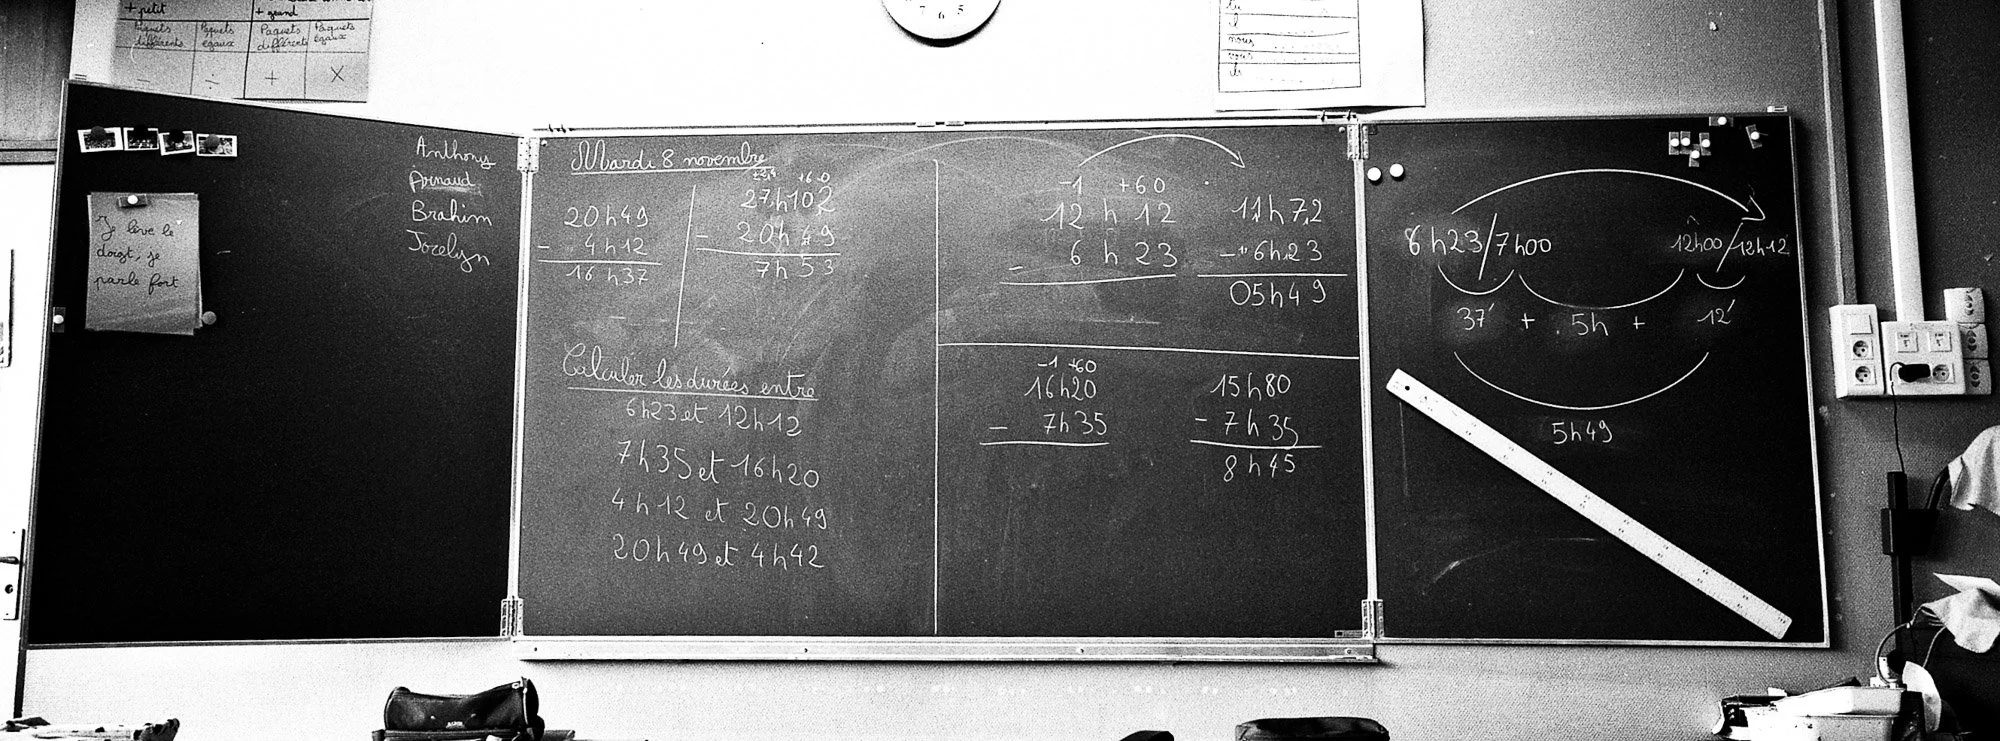 + petit
+ grand
Paquets différents
Paquets égaux
Paquets différents
Paquets égaux
- ÷ + ×
7 6 5
tu
il
nous
vous
ils
Je lève le
doigt, je
parle fort
Anthony
Arnaud
Brahim
Jocelyn
Mardi 8 novembre
20h49
- 4h12
16h37
+60
27h102
- 20h49
7h53
Calculer les durées entre
6h23 et 12h12
7h35 et 16h20
4h12 et 20h49
20h49 et 4h42
-1 +60
12h12
- 6h23
11h72
- 6h23
05h49
-1 +60
16h20
- 7h35
15h80
- 7h35
8h45
6h23/7h00
12h00/12h12
37' + 5h + 12'
5h49